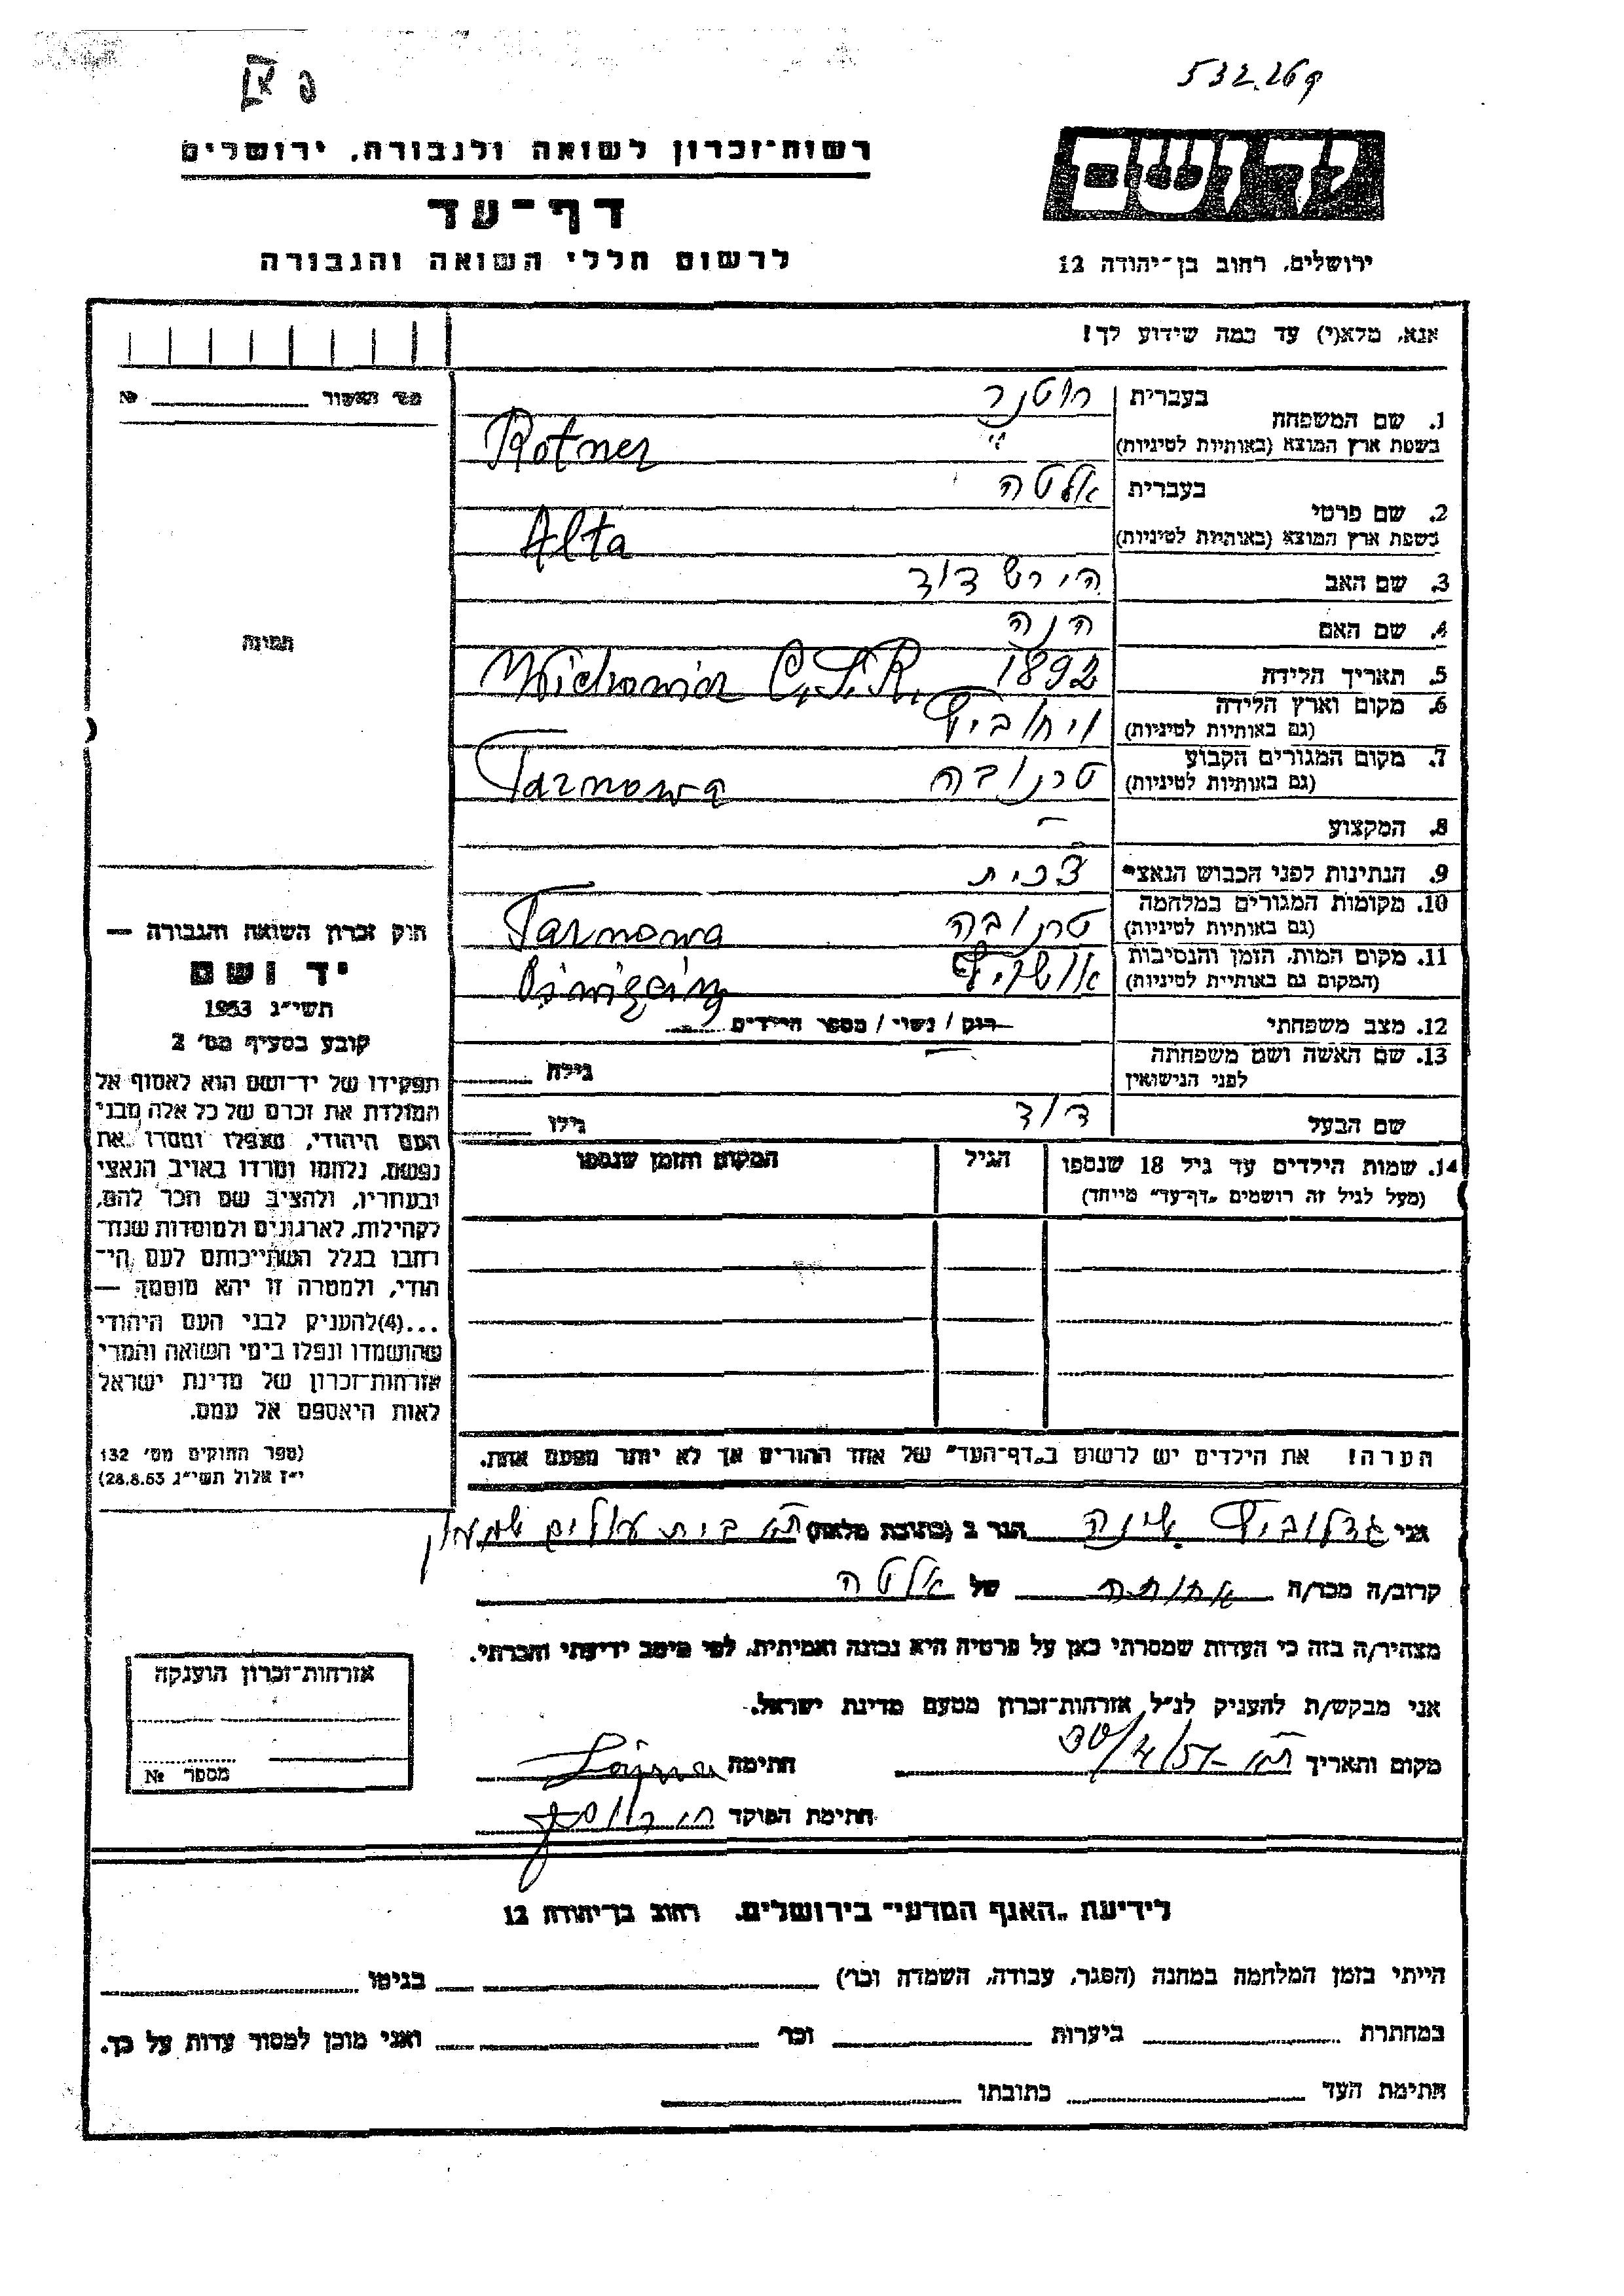 532.269
רשות-זכרון לשואה ולגבורה, ירושלים
דף-עד
לרשום חללי השואה והגבורה
ידושם
ירושלים, רחוב בן-יהודה 12
אנא, מלא(י) עד כמה שידוע לך!
מס' האשור № 
1. שם המשפחה בעברית רוטנר
בשפת ארץ המוצא (באותיות לטיניות) " Rotner
2. שם פרטי בעברית אלטה
בשפת ארץ המוצא (באותיות לטיניות) Alta
3. שם האב הירש דוד
4. שם האם חנה
5. תאריך הלידה 1892
6. מקום וארץ הלידה (גם באותיות לטיניות) C.S.R.
7. מקום המגורים הקבוע (גם באותיות לטיניות) טרנובה Tarnowa
8. המקצוע —
9. הנתינות לפני הכבוש הנאצי צכית
10. מקומות המגורים במלחמה (גם באותיות לטיניות) טרנובה Tarnowa
11. מקום המות, הזמן והנסיבות (המקום גם באותיית לטיניות)
12. מצב משפחתי רוק / נשוי / מספר הילדים
13. שם האשה ושם משפחתה לפני הנישואין — גילה
שם הבעל דוד גילו
14. שמות הילדים עד גיל 18 שנספו הגיל המקום והזמן שנספו
(מעל לגיל זה רושמים "דף-עד" מיוחד)
הערה! את הילדים יש לרשום ב"דף-העד" של אחד ההורים אך לא יותר מפעם אחת.
תמונה
חוק זכרון השואה והגבורה —
יד ושם
תשי"ג 1953
קובע בסעיף מס' 2
תפקידו של יד-ושם הוא לאסוף אל
המולדת את זכרם של כל אלה מבני
העם היהודי, שנפלו ומסרו את
נפשם, נלחמו ומרדו באויב הנאצי
ובעוזריו, ולהציב שם וזכר להם,
לקהילות, לארגונים ולמוסדות שנח-
רבו בגלל השתייכותם לעם הי-
הודי, ולמטרה זו יהא מוסמך —
...(4)להעניק לבני העם היהודי
שהושמדו ונפלו בימי השואה והמרי
אזרחות-זכרון של מדינת ישראל
לאות היאספם אל עמם.
(ספר החוקים מס' 132
י"ז אלול תשי"ג 28.8.53)
אני שינה הגר ב (כתובת מלאה) בית עולים
קרוב/ה מכר/ה אחותה של אלטה
מצהיר/ה בזה כי העדות שמסרתי כאן על פרטיה היא נכונה ואמיתית, לפי מיטב ידיעתי והכרתי.
אני מבקש/ת להעניק לנ"ל אזרחות-זכרון מטעם מדינת ישראל.
מקום ותאריך חתימה
חתימת הפוקד
אזרחות-זכרון הוענקה
מספר №
לידיעת "האגף המדעי" בירושלים, רחוב בן-יהודה 12
הייתי בזמן המלחמה במחנה (הסגר, עבודה, השמדה וכו') בגיטו
במחתרת ביערות וכו' ואני מוכן למסור עדות על כך.
חתימת העד כתובתו